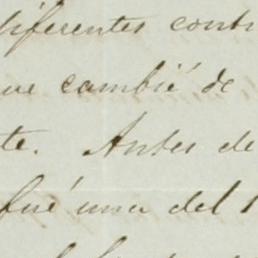 diferentes contr
ue cambié de
te. Antes de
fué una del 1